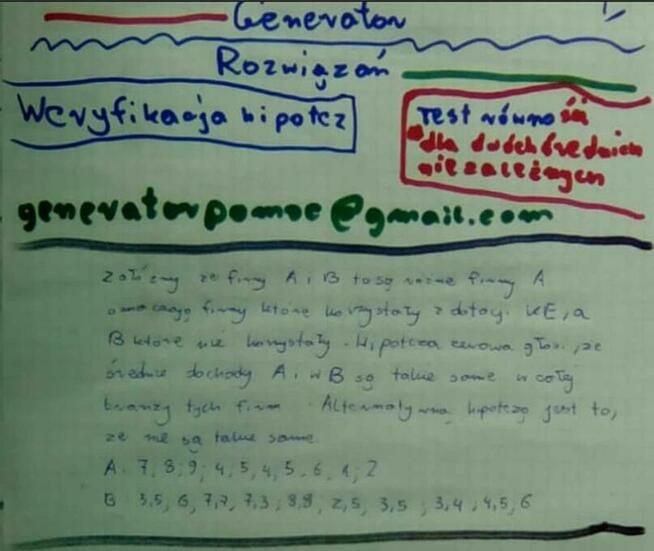 Generator
Rozwiązań
Weryfikacja hipotez
Test równości
dla dwóch średnich
niezależnych
generatorpomoc@gmail.com
Załóżmy że firmy A i B to są różne firmy A
oznaczają firmy które korzystały z dotacji UE, a
B które nie korzystały. Hipoteza zerowa głosi, że
średnie dochody A i w B są takie same w całej
branży tych firm. Alternatywną hipotezą jest to,
że nie są takie same.
A: 7, 8, 9, 4, 5, 4, 5, 6, 1, 2
B: 3,5, 6, 7,7, 7,3, 8,8, 2,5, 3,5, 3,4, 4,5, 6